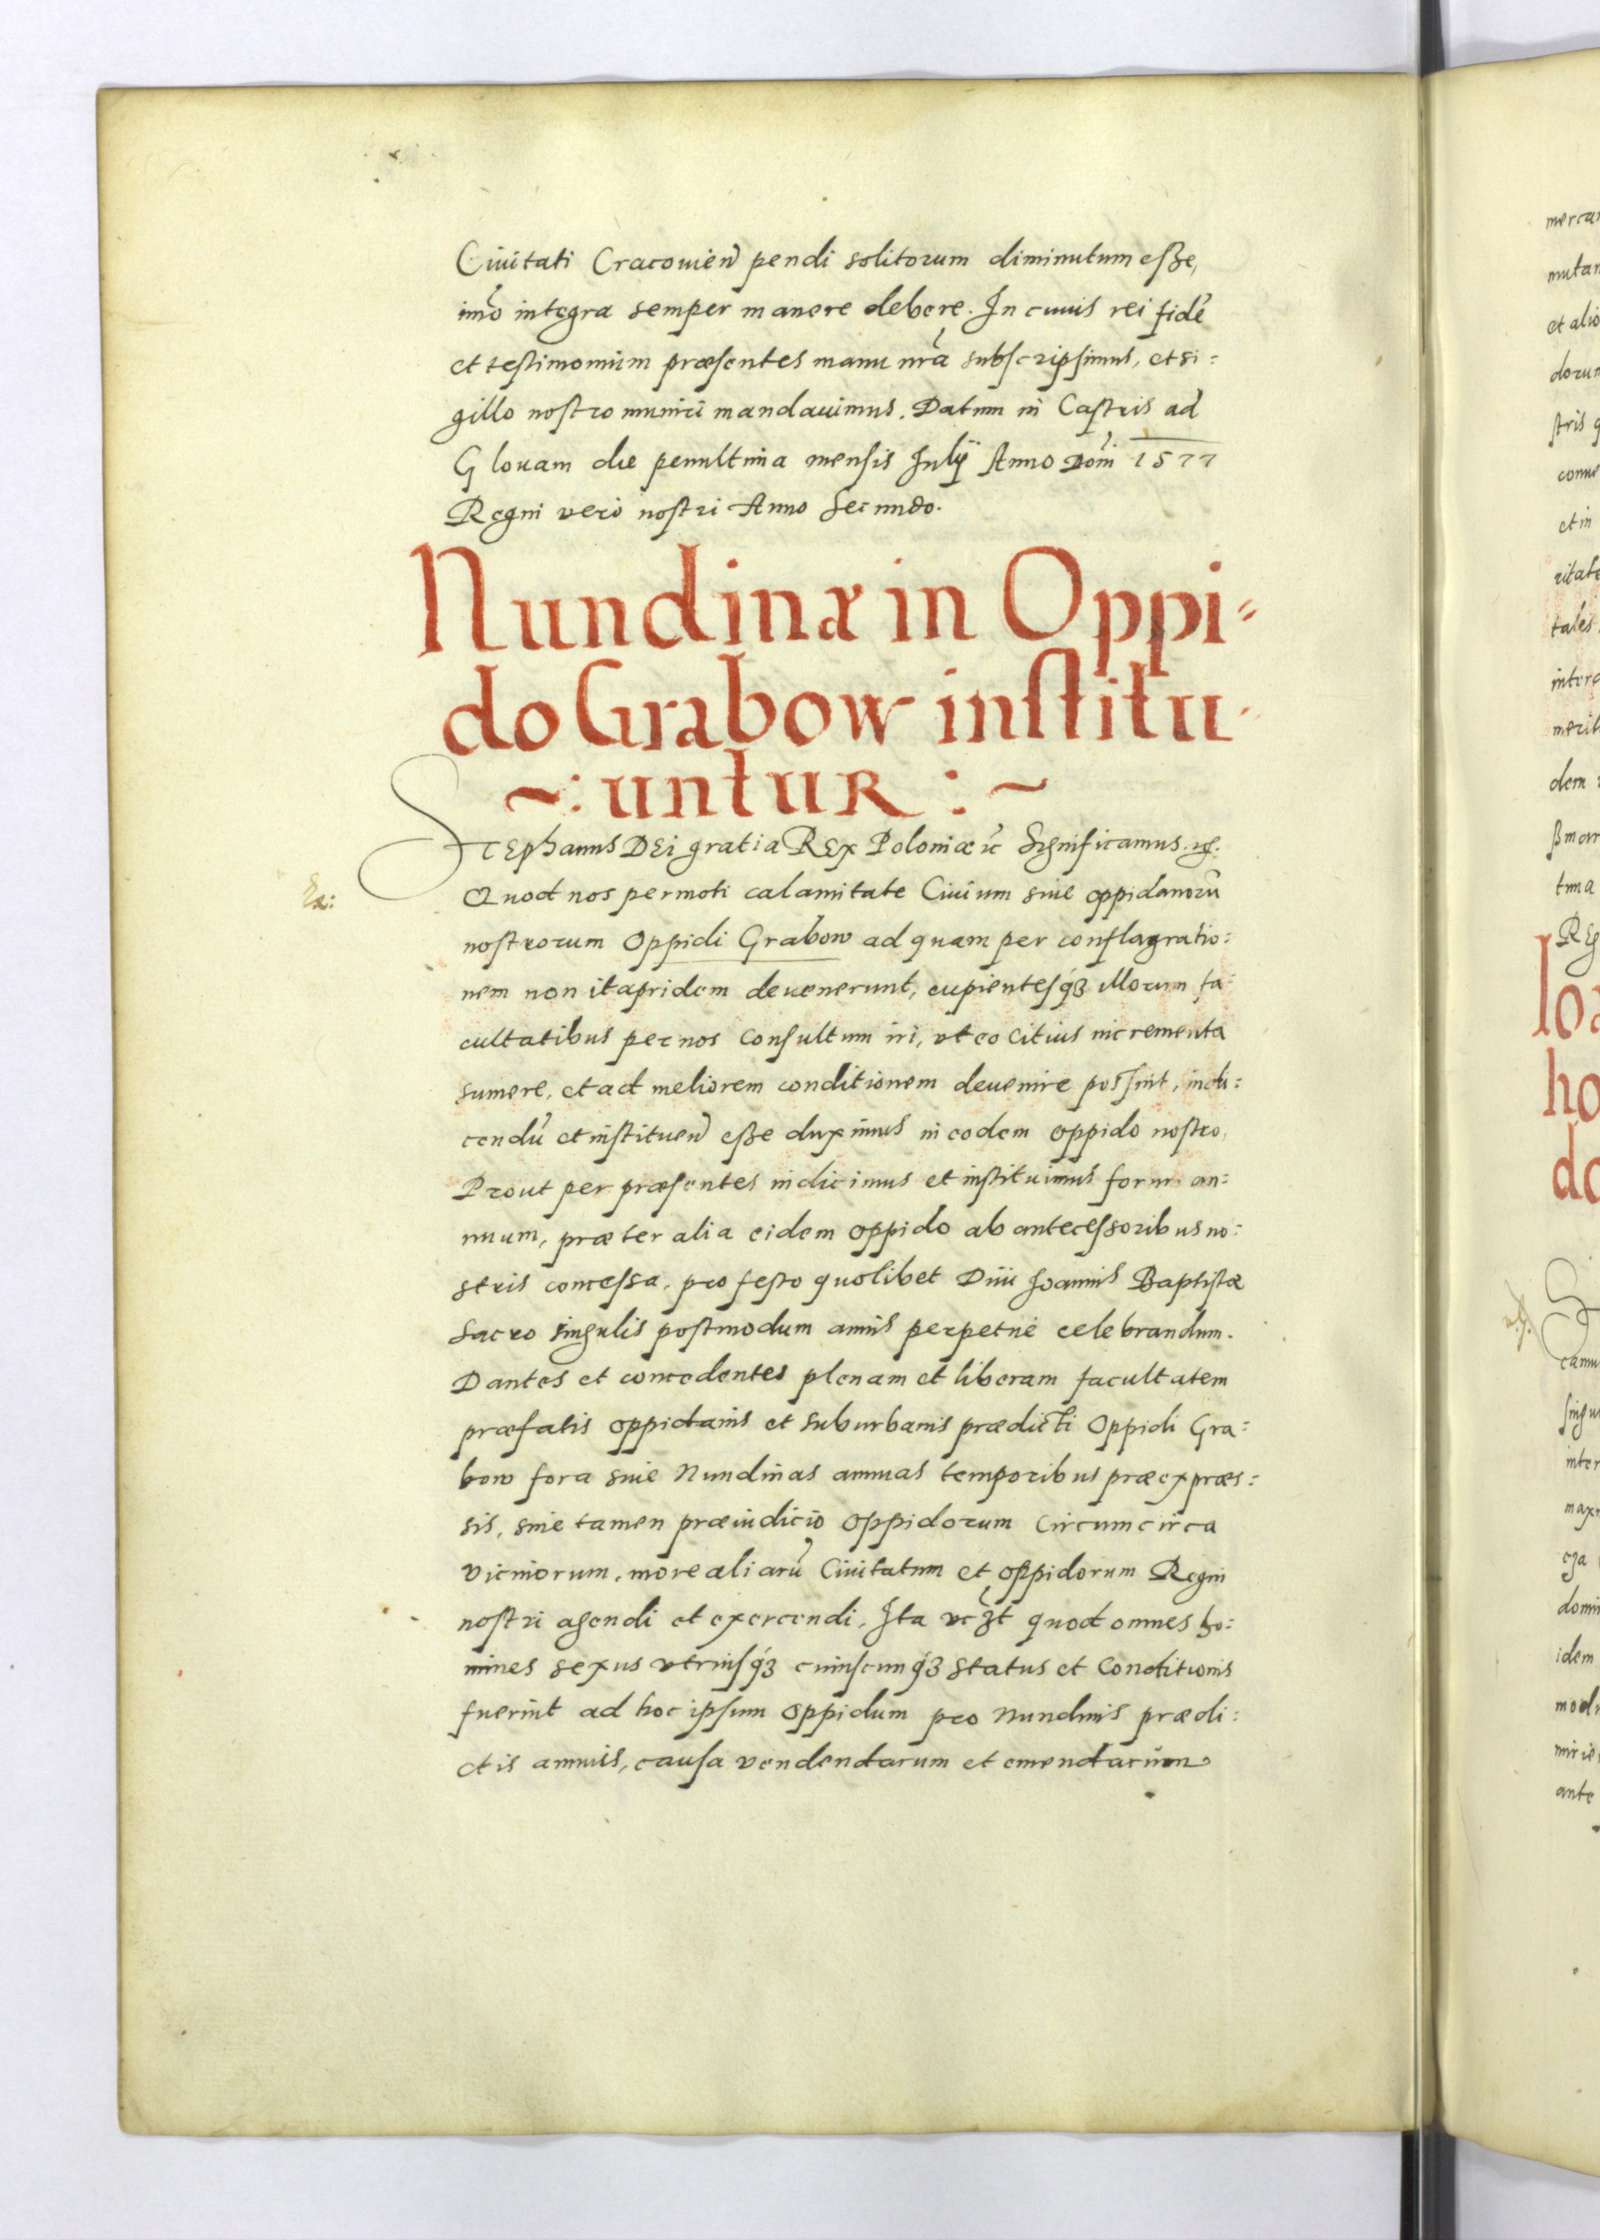 Ciuitati Cracouien̄ pendi solitorum diminutum eße,
im̃o integra semper manere debere. In cuius rei fidē
et testimonium præsentes manu nr̃a subscripsimus, et si:
gillo nostro muniri mandauimus. Datum in Castris ad
Glouam die penultima mensis Julij Anno Dom̃ 1577
Regni vero nostri Anno Secundo.
Nundinæ in Oppi=
do Grabow institu-
~: untur : ~
Stephanus Dei gratia Rex Poloniæ etc̃ Significamus.
Quod nos permoti calamitate Ciuium siue oppidanorũ
nostrorum Oppidi Grabow ad quam per conflagratio:
nem non ita pridem deuenerunt, cupientesq́ꝫ illorum fa:
cultatibus per nos Consultum iri, vt eo Citius incrementa
sumere, et ad meliorem conditionem deuenire possint, indi:
cendũ et instituen̄ eße duximus in eodem oppido nostro,
Prout per præsentes indicimus et instituimus forum an:
nuum, præter alia eidem oppido ab antecessoribus no:
stris concessa, pro festo quolibet Diui Joannis Baptistæ
Sacro singulis postmodum annis perpetuè celebrandum.
Dantes et concedentes plenam et liberam facultatem
præfatis oppidanis et suburbanis prædicti Oppidi Gra:
bow fora siue Nundinas annuas temporibus præexpræs:
sis, sine tamen præiudicio Oppidorum Circumcirca
vicinorum, more aliarũ Ciuitatum et oppidorum Regni
nostri agendi et exercendi. Ita vcꝫt quod omnes ho:
mines sexus vtriusq́ꝫ cuiuscunq́ꝫ status et Conditionis
fuerint ad hoc ipsum Oppidum pro Nundinis prædi:
ctis annuis, causa vendendarum et emendarum